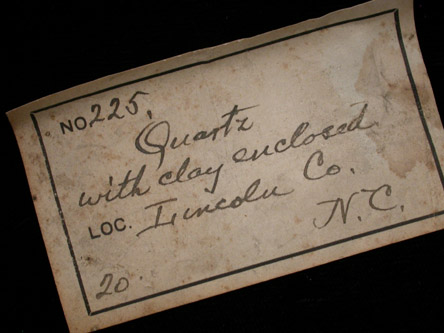 NO 225.
Quartz
with clay enclosed
LOC. Lincoln Co.
N.C.
20.